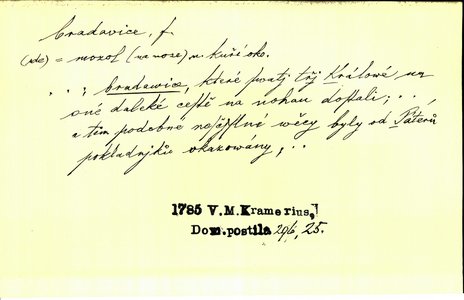 bradavice, f.
(zde) = mozol (na noze) n. kuří oko.
. . , bradawice, které swatj třj Králowé na
své daleké cestě na nohau dostali; . .
a těm podobné nesčjslné wěcy byly od Páterů
pokladnjků okazowány, . .
1785 V.M.Kramerius,
Dom.postila 296, 25.